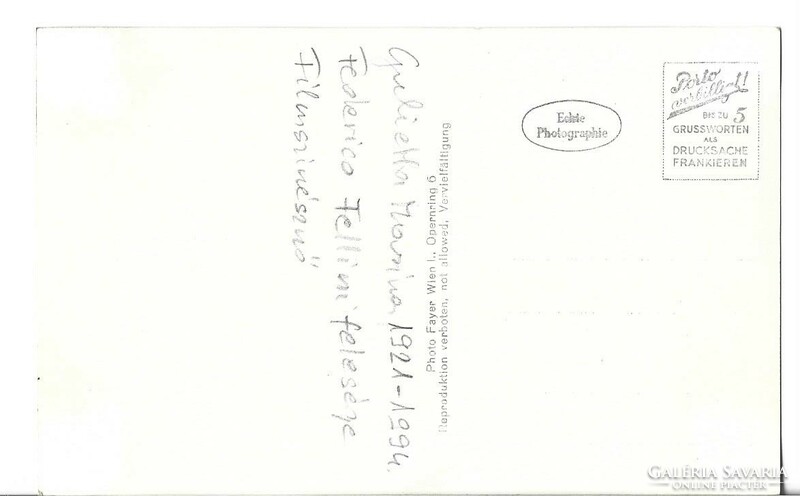 Giulietta Masina 1921-1994.
Federico Fellini felesége
Filmszinésznő
Photo Fayer Wien I., Opernring 6
Reproduktion verboten, not allowed, Vervielfältigung
Echte
Photographie
Porto
verbilligt!
BIS ZU 5
GRUSSWORTEN
ALS
DRUCKSACHE
FRANKIEREN
GALÉRIA SAVARIA
ONLINE PIACTÉR